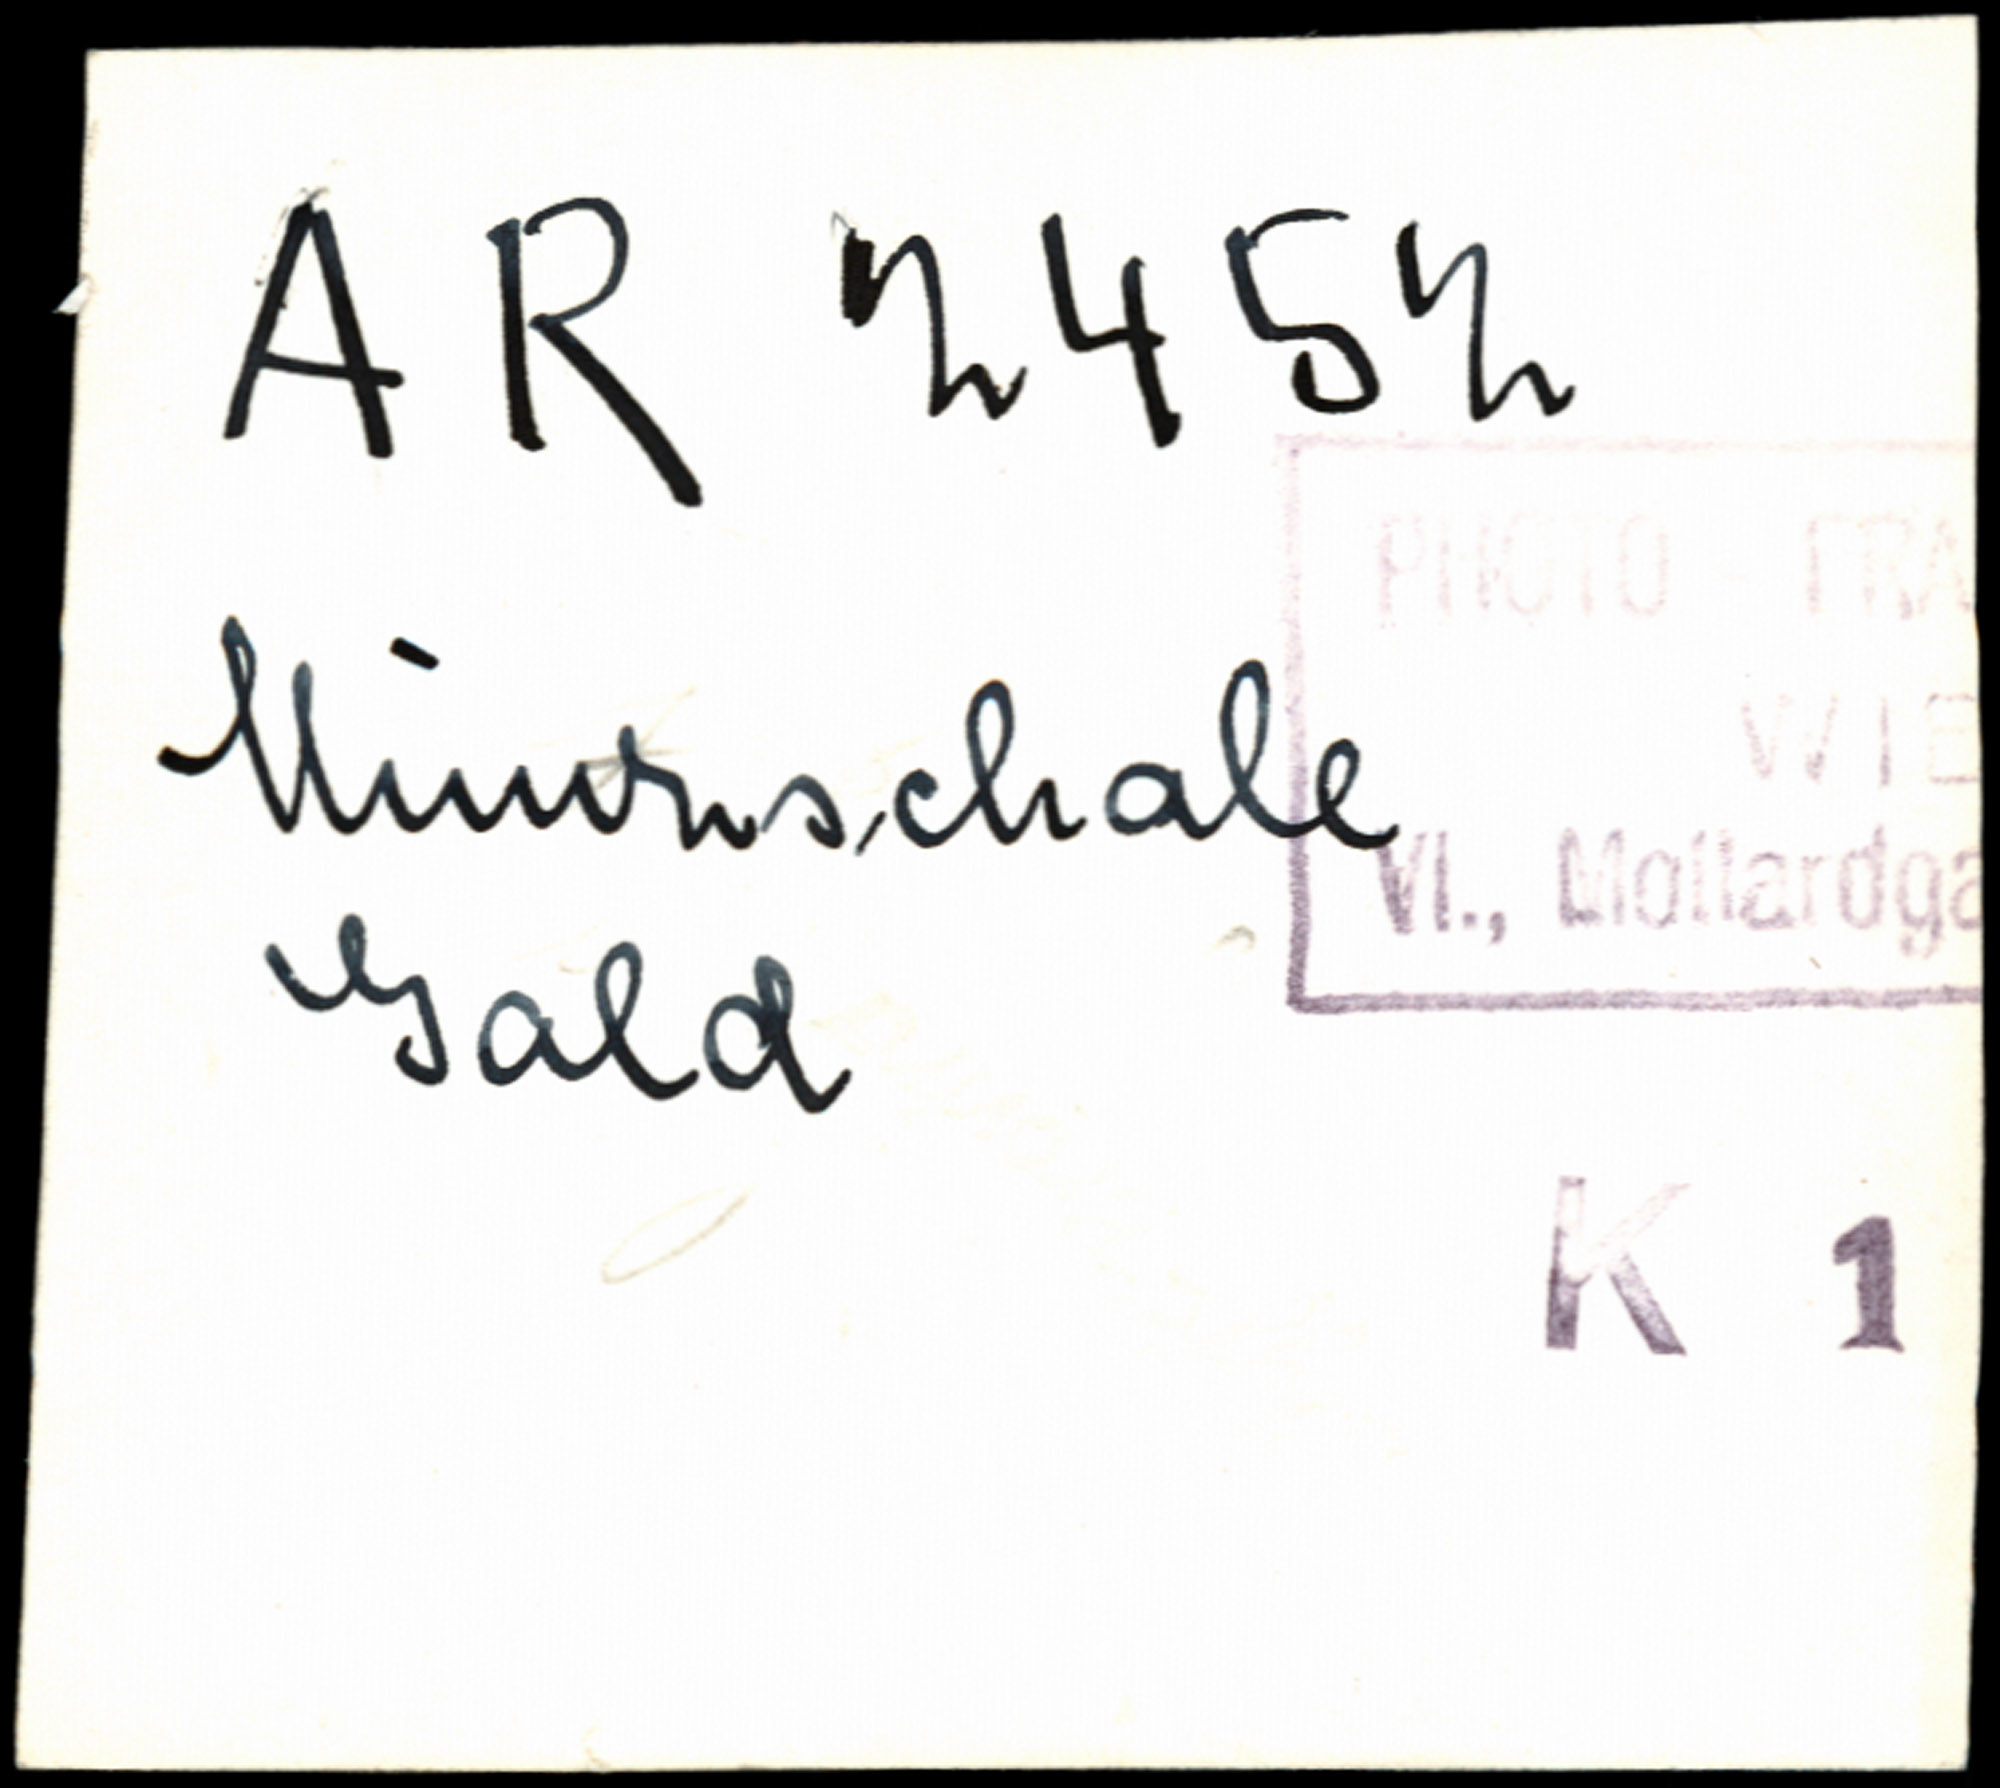 AR 2452
PHOTO FRA
WIE
VI., Mollardga
Gold
K 1